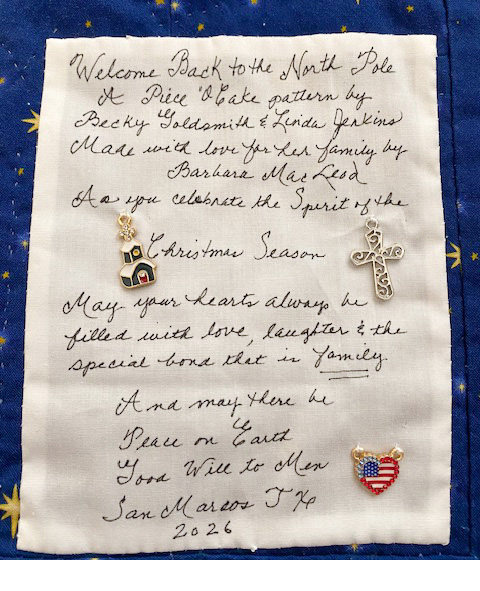 Welcome Back to the North Pole
A Piece 'O Cake pattern by
Becky Goldsmith & Linda Jenkins
Made with love for her family by
Barbara MacLeod
As you celebrate the Spirit of the
Christmas Season
May your hearts always be
filled with love, laughter & the
special bond that is family.
And may there be
Peace on Earth
Good Will to Men
San Marcos TX
2026